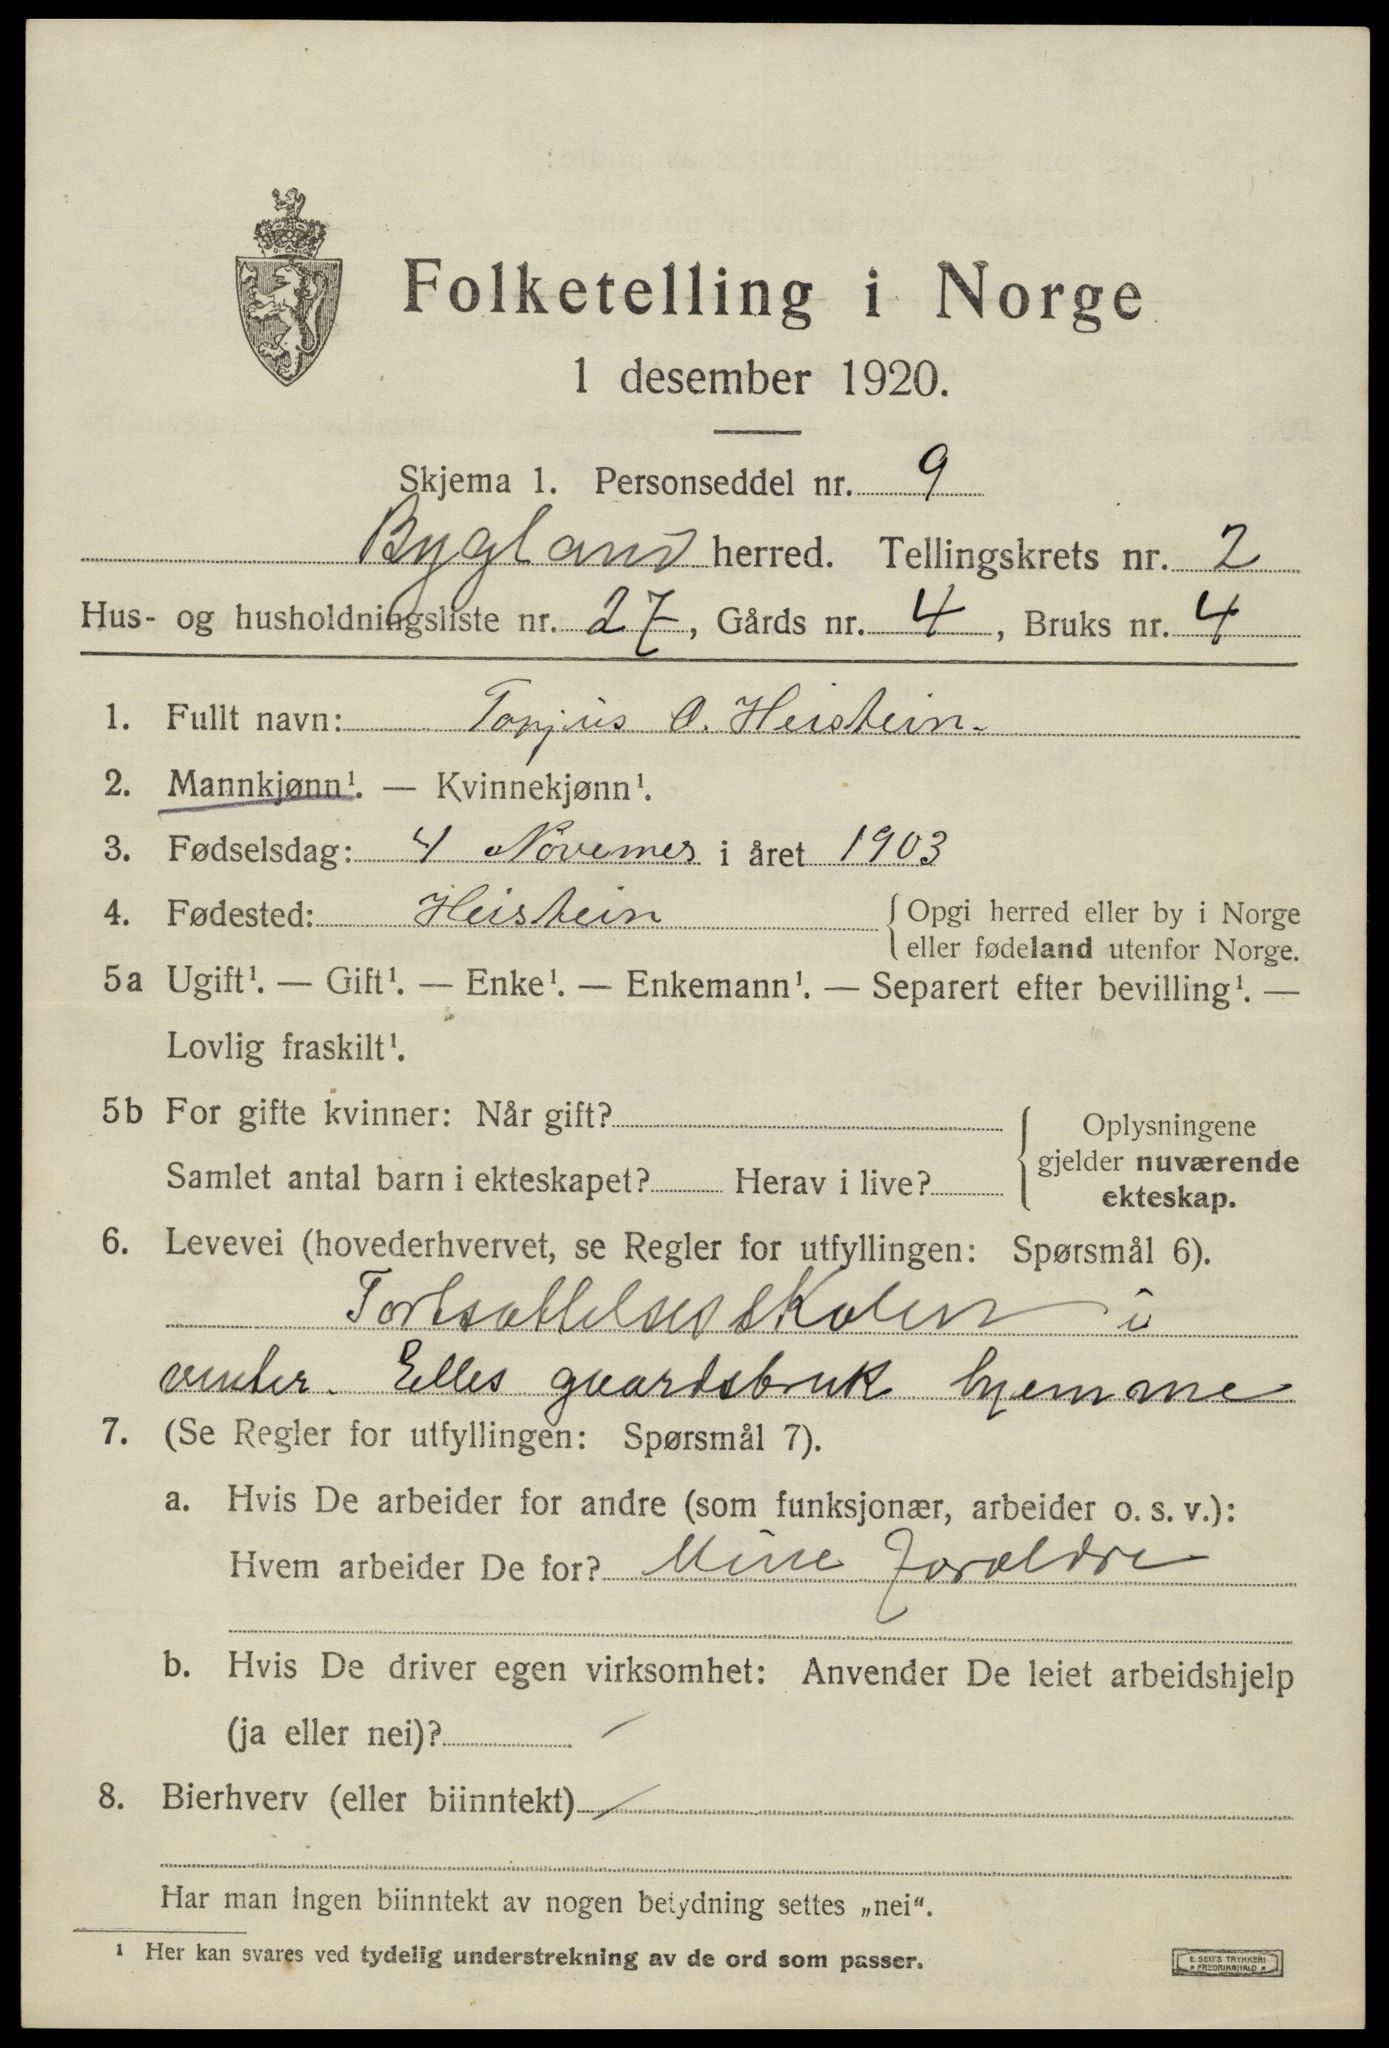 Folketelling i Norge
1 desember 1920.
Skjema 1. Personseddel nr. 9
Bygland herred. Tellingskrets nr. 2
Hus- og husholdningsliste nr. 27, Gårds nr. 4, Bruks nr. 4
1. Fullt navn: Torjus O. Heistein.
2. Mannkjønn¹. — Kvinnekjønn¹.
3. Fødselsdag: 4 Novemer i året 1903
4. Fødested: Heistein { Opgi herred eller by i Norge
eller fødeland utenfor Norge.
5a Ugift¹. — Gift¹. — Enke¹. — Enkemann¹. — Separert efter bevilling¹. —
Lovlig fraskilt¹.
5b For gifte kvinner: Når gift?
Samlet antal barn i ekteskapet? Herav i live?
{ Oplysningene
gjelder nuværende
ekteskap.
6. Levevei (hovederhvervet, se Regler for utfyllingen: Spørsmål 6).
Fortsættelsesskolen i
vinter. Elles gaardsbruk hjemme
7. (Se Regler for utfyllingen: Spørsmål 7).
a. Hvis De arbeider for andre (som funksjonær, arbeider o. s. v.):
Hvem arbeider De for? Mine Foraldre
b. Hvis De driver egen virksomhet: Anvender De leiet arbeidshjelp
(ja eller nei)? /
8. Bierhverv (eller biinntekt) /
Har man ingen biinntekt av nogen betydning settes „nei".
¹ Her kan svares ved tydelig understrekning av de ord som passer.
E. SEM'S TRYKKERI
* FREDRIKSHALD *